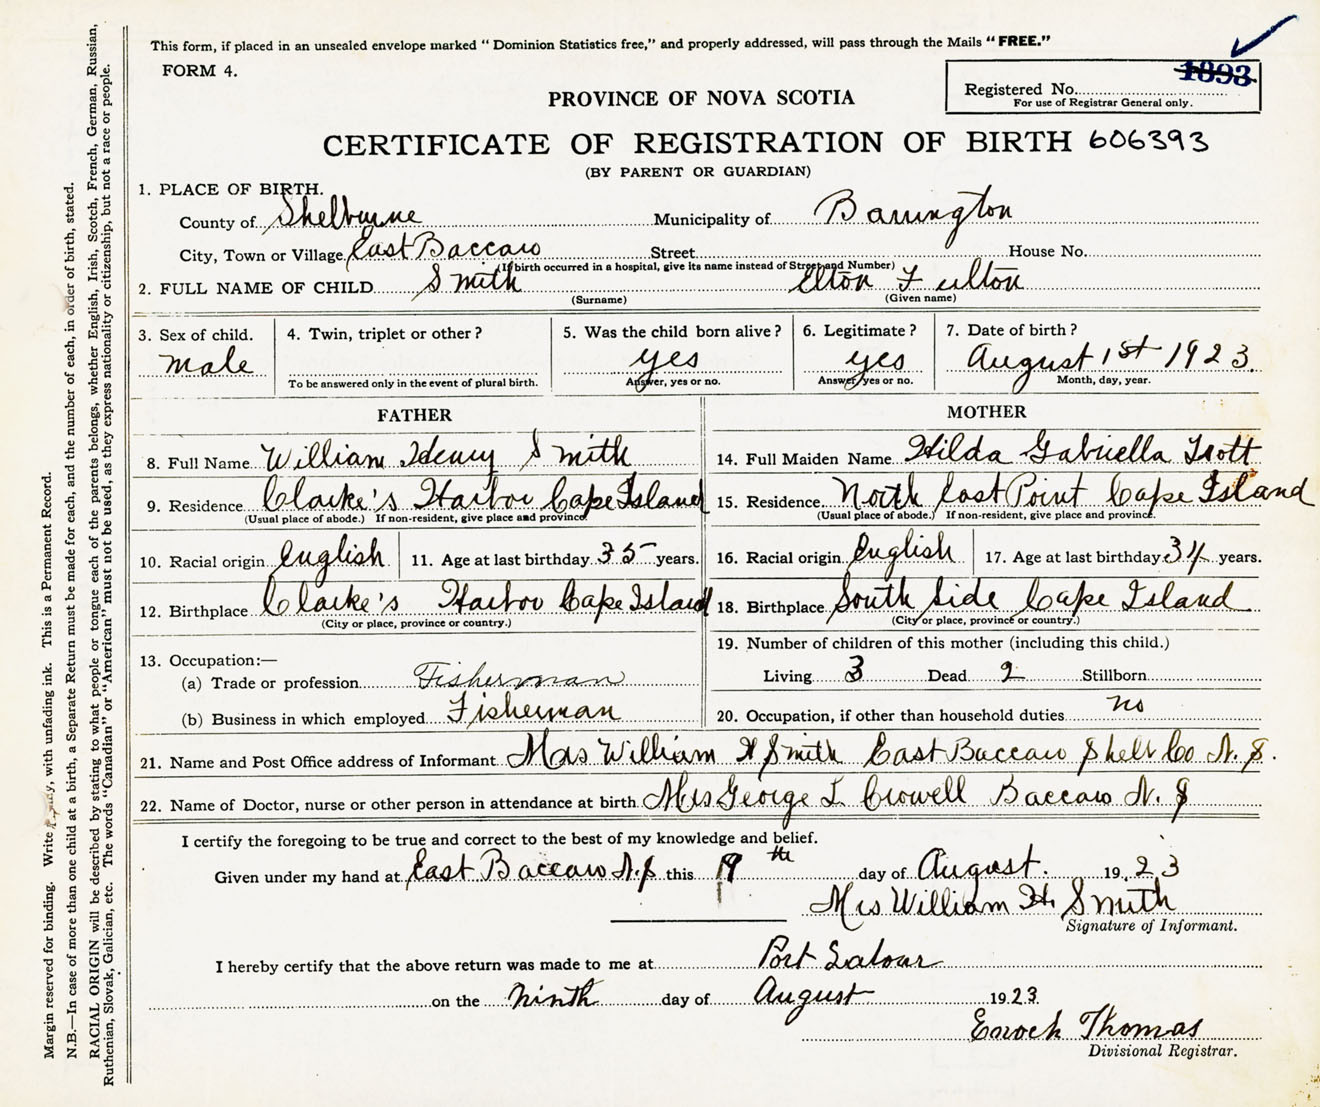 This form, if placed in an unsealed envelope marked “ Dominion Statistics free,” and properly addressed, will pass through the Mails “ FREE.”
FORM 4.
1893
Registered No.
For use of Registrar General only.
PROVINCE OF NOVA SCOTIA
CERTIFICATE OF REGISTRATION OF BIRTH 606393
(BY PARENT OR GUARDIAN)
1. PLACE OF BIRTH.
County of Shelburne Municipality of Barrington
City, Town or Village East Baccaro Street House No.
(If birth occurred in a hospital, give its name instead of Street and Number)
2. FULL NAME OF CHILD Smith Elton Fulton
(Surname) (Given name)
3. Sex of child. 4. Twin, triplet or other ? 5. Was the child born alive ? 6. Legitimate ? 7. Date of birth ?
male yes yes August 1st 1923.
To be answered only in the event of plural birth. Answer, yes or no. Answer, yes or no. Month, day, year.
FATHER MOTHER
8. Full Name William Henry Smith 14. Full Maiden Name Hilda Gabriella Trott
9. Residence Clarke's Harbor Cape Island 15. Residence North East Point Cape Island
(Usual place of abode.) If non-resident, give place and province. (Usual place of abode.) If non-resident, give place and province.
10. Racial origin English 11. Age at last birthday 35 years. 16. Racial origin English 17. Age at last birthday 34 years.
12. Birthplace Clarke's Harbor Cape Island 18. Birthplace South Side Cape Island
(City or place, province or country.) (City or place, province or country.)
19. Number of children of this mother (including this child.)
13. Occupation:—
Living 3 Dead 2 Stillborn
(a) Trade or profession Fisherman
(b) Business in which employed Fisherman 20. Occupation, if other than household duties no
21. Name and Post Office address of Informant Mrs William H Smith East Baccaro Shelb Co N. S.
22. Name of Doctor, nurse or other person in attendance at birth Mrs George L Crowell Baccaro N. S
I certify the foregoing to be true and correct to the best of my knowledge and belief.
Given under my hand at East Baccaro N.S this 9 th day of August. 1923
Mrs William H. Smith
Signature of Informant.
I hereby certify that the above return was made to me at Port Latour
on the Ninth day of August 1923
Enoch Thomas
Divisional Registrar.
Margin reserved for binding. Write with unfading ink. This is a Permanent Record.
N.B.—In case of more than one child at a birth, a Separate Return must be made for each, and the number of each, in order of birth, stated.
RACIAL ORIGIN will be described by stating to what people or tongue each of the parents belongs, whether English, Irish, Scotch, French, German, Russian,
Ruthenian, Slovak, Galician, etc. The words “Canadian” or “American” must not be used, as they express nationality or citizenship, but not a race or people.